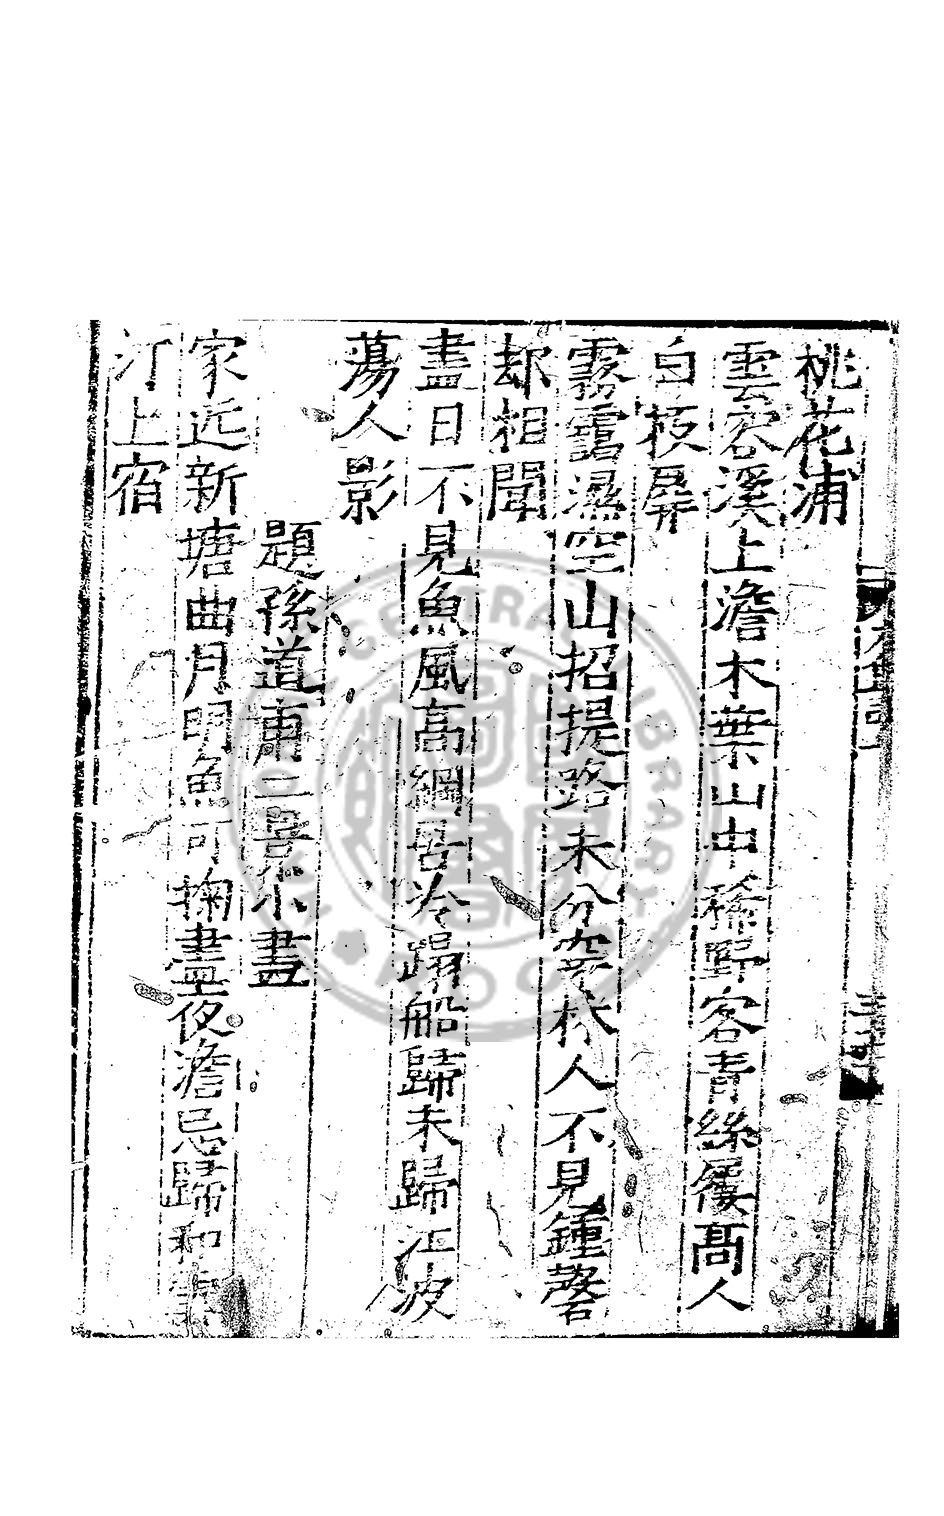 桃花浦
雲容溪上澹木葉山中稀野客青絲履髙人
白板扉
霧靄濕空山招提路未分穿林人不見鍾磬
却相聞
盡日不見魚風高綱罟冷蹋船歸未歸江波
蕩人影
題孫道甫三景小畫
家近新塘曲月明魚可掬盡夜澹忘歸和
汀上宿
CENTRAL LIBRARY